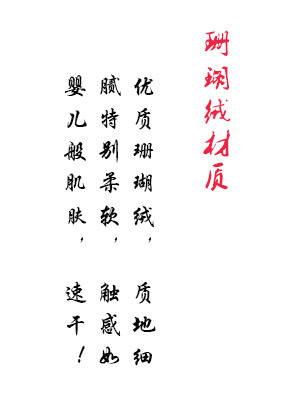 珊瑚绒材质
优质珊瑚绒，质地细
腻特别柔软，触感如
婴儿般肌肤，速干！